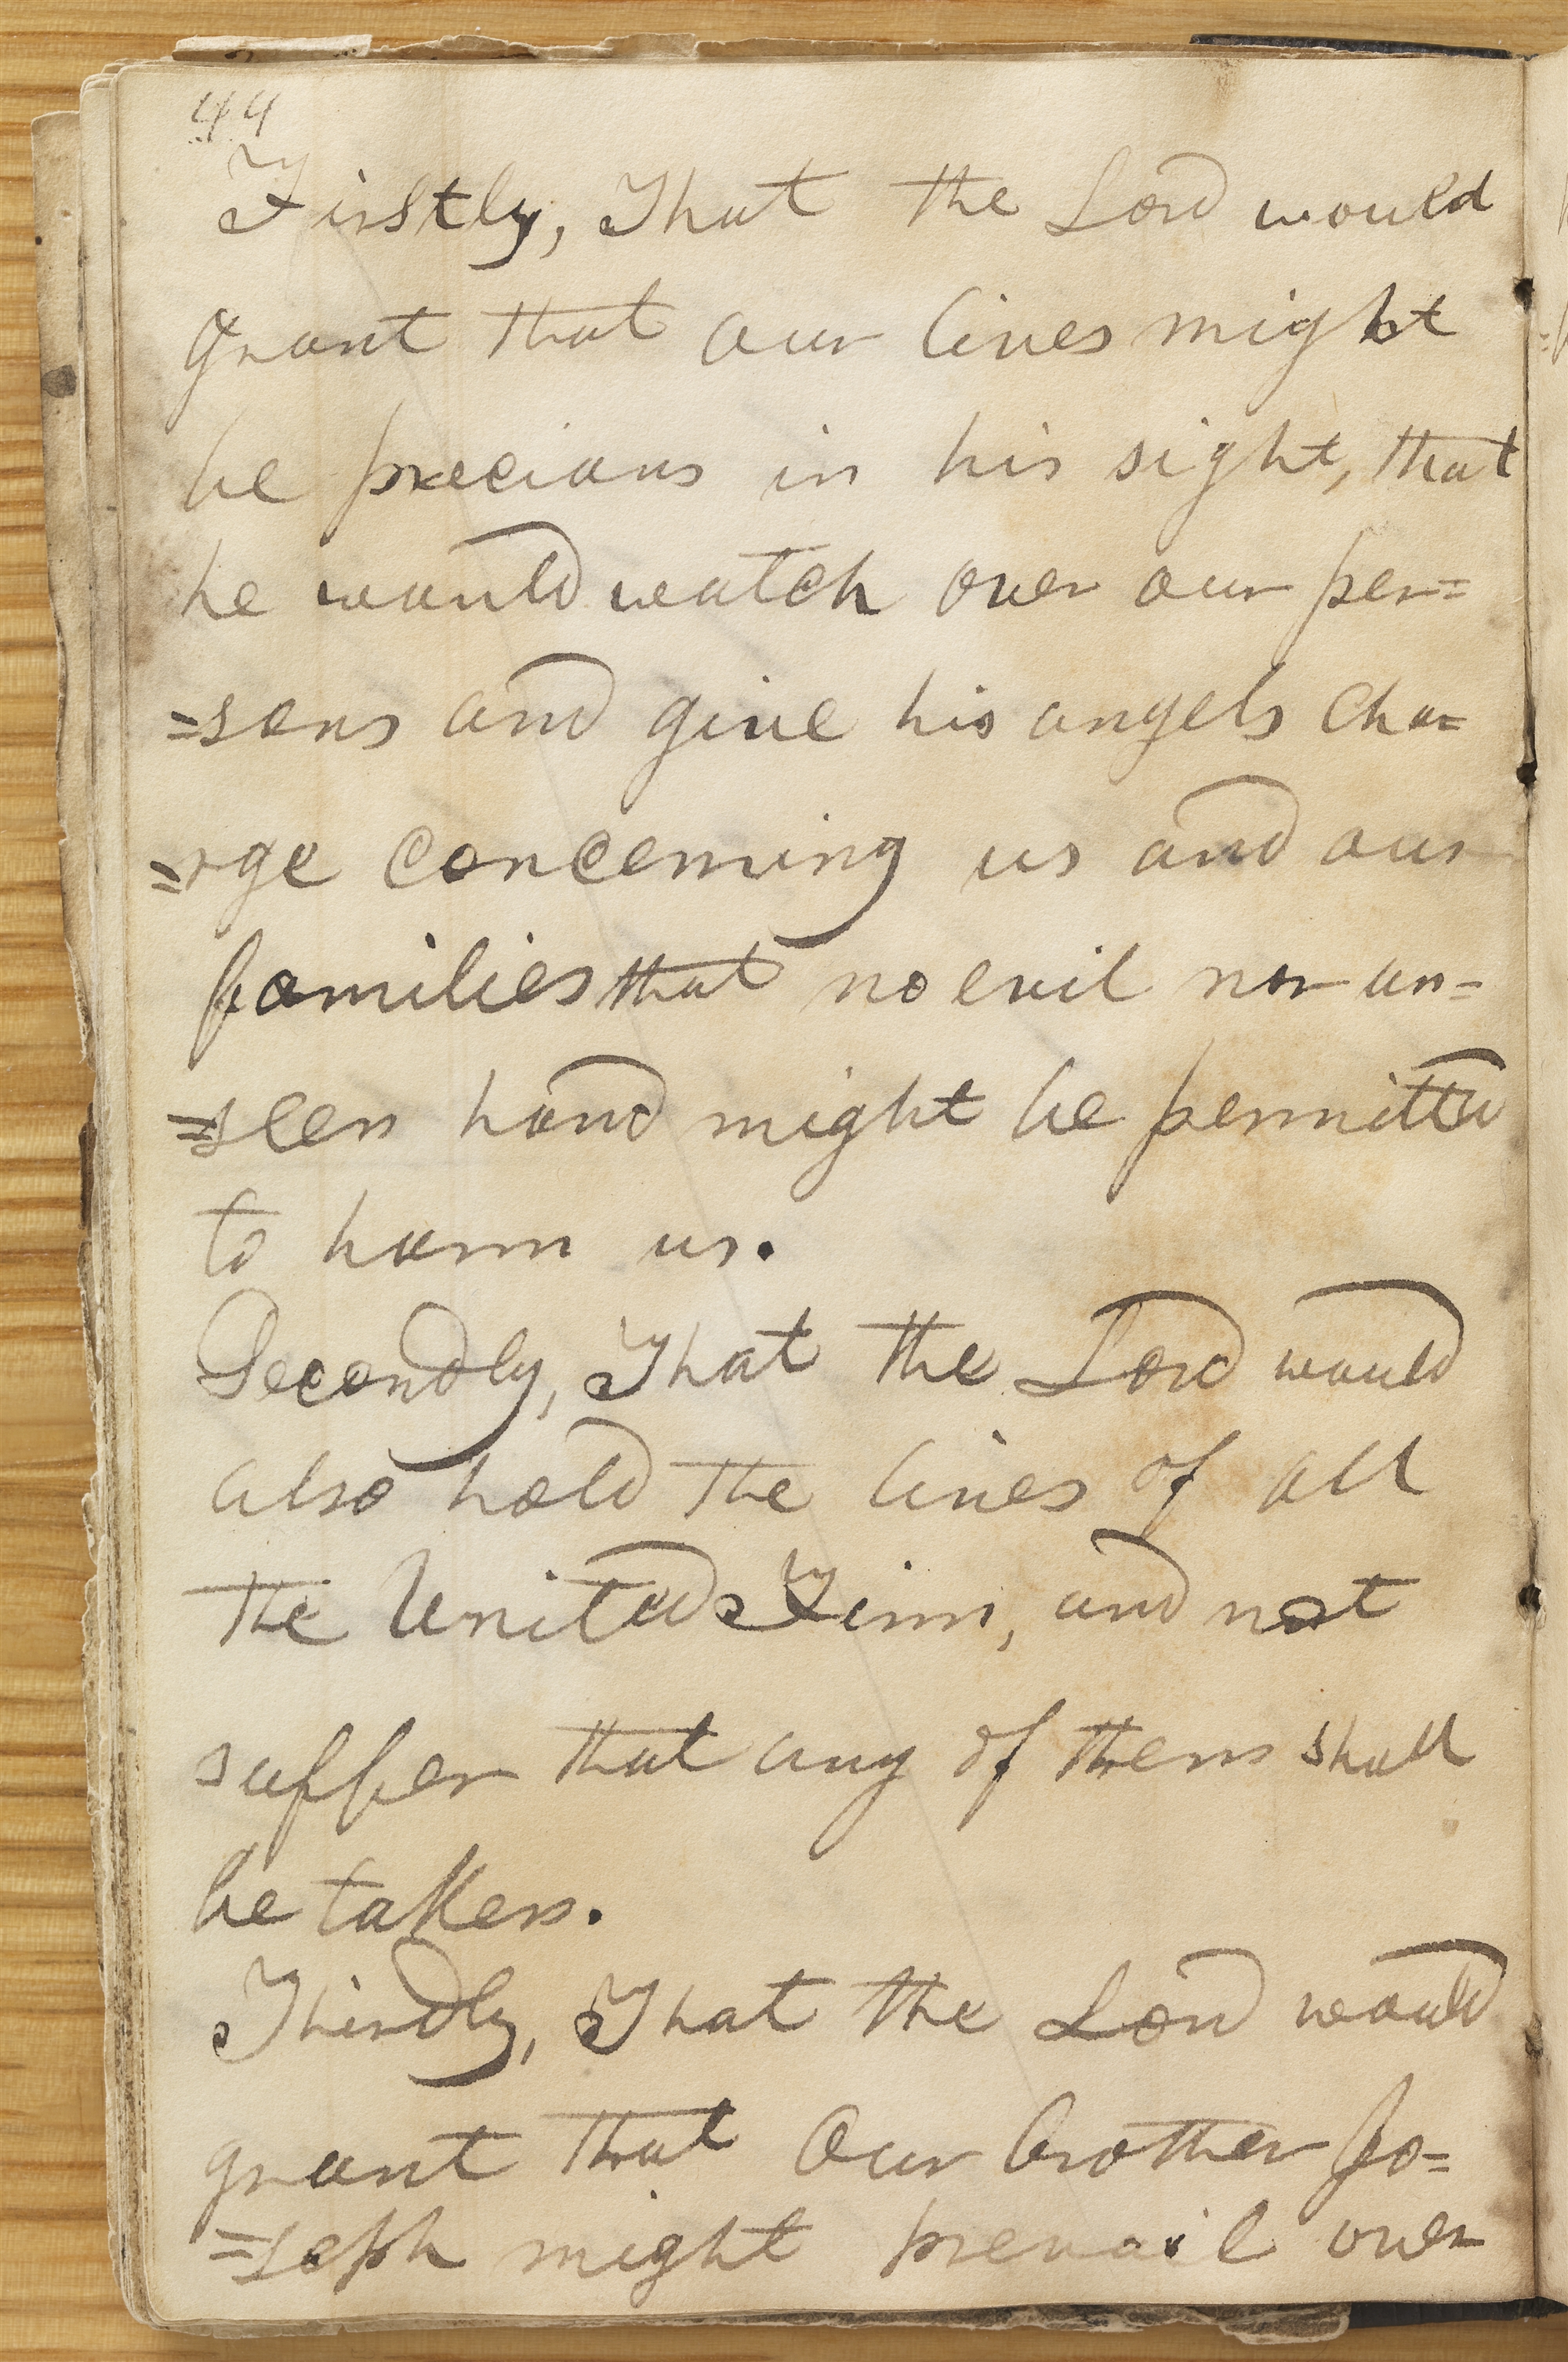 44
Firstly, That the Lord would
grant that our lives might
be precious in his sight, that
he would watch over our per=
=sons and give his angels cha=
=rge concerning us and our
families that no evil nor un=
=seen hand might be permitted
to harm us.
Secondly, That the Lord would
also hold the lives of all
the United Firm, and not
suffer that any of them shall
be taken.
Thirdly, That the Lord would
grant that Our brother Jo=
=seph might prevail over